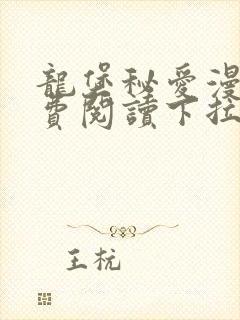 龍堡秘愛漫
費閱讀下拉
王杭